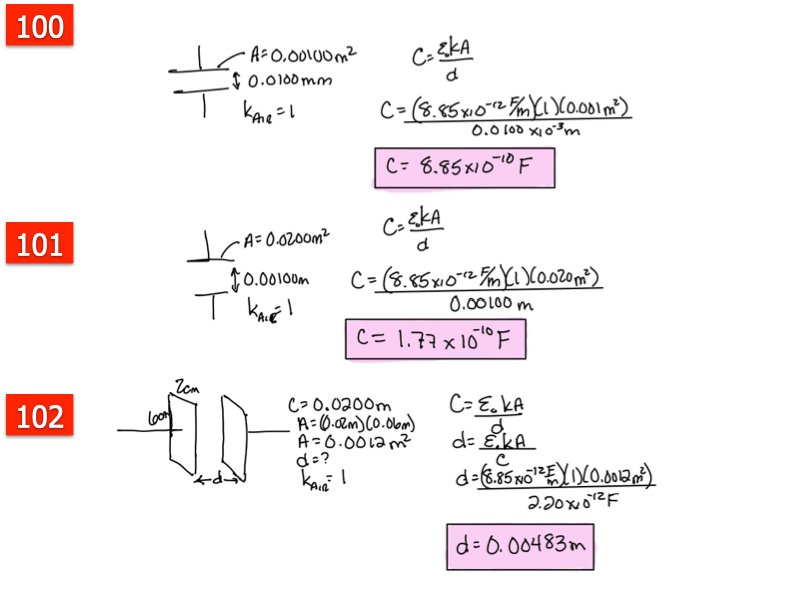 100
A=0.00100m²
0.0100mm
k_AIR=1
C=ε₀kA/d
C=(8.85x10⁻¹² F/m)(1)(0.001m²)
0.0100 x10⁻³m
C= 8.85x10⁻¹⁰ F
101
A=0.0200m²
0.00100m
k_AIR=1
C=ε₀kA/d
C=(8.85x10⁻¹² F/m)(1)(0.020m²)
0.00100 m
C= 1.77 x 10⁻¹⁰ F
102
2cm
6cm
d
C=0.0200m
A=(0.02m)(0.06m)
A=0.0012m²
d=?
k_AIR=1
C=ε₀kA/d
d=ε₀kA/C
d=(8.85x10⁻¹² F/m)(1)(0.0012m²)
2.20x10⁻¹² F
d=0.00483m